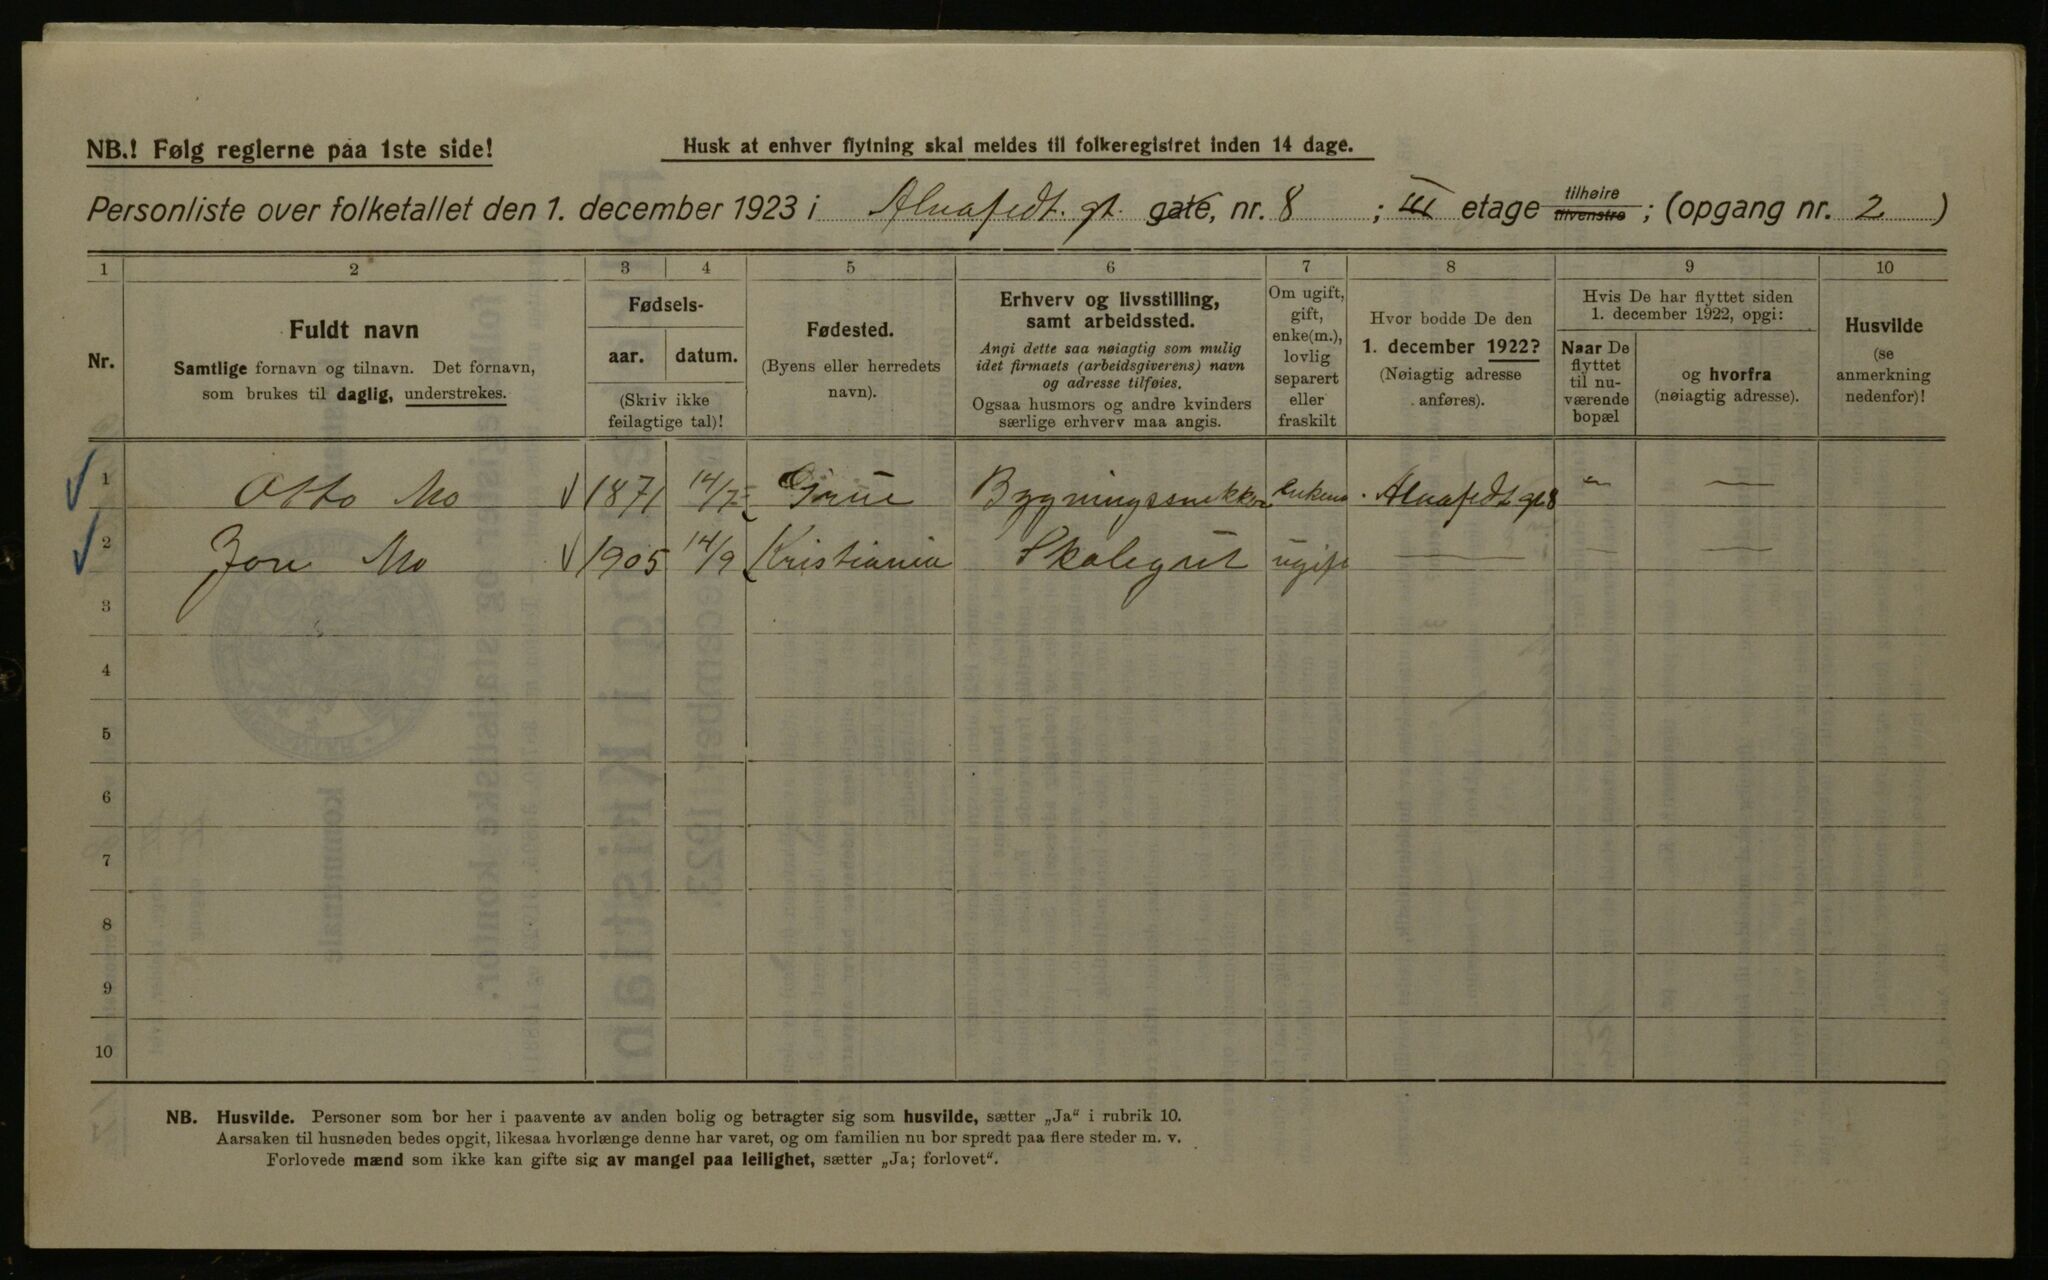 NB.! Følg reglerne paa 1ste side!
Husk at enhver flytning skal meldes til folkeregistret inden 14 dage.
Personliste over folketallet den 1. december 1923 i Alnafedt. gt. gate, nr. 8 ; III etage tilhøire tilvenstre ; (opgang nr. 2 )
1 2 3 4 5 6 7 8 9 10
Nr.
Fuldt navn
Samtlige fornavn og tilnavn. Det fornavn,
som brukes til daglig, understrekes.
Fødsels-
aar. datum.
(Skriv ikke
feilagtige tal)!
Fødested.
(Byens eller herredets
navn).
Erhverv og livsstilling,
samt arbeidssted.
Angi dette saa nøiagtig som mulig
idet firmaets (arbeidsgiverens) navn
og adresse tilføies.
Ogsaa husmors og andre kvinders
særlige erhverv maa angis.
Om ugift,
gift,
enke(m.),
lovlig
separert
eller
fraskilt
Hvor bodde De den
1. december 1922?
(Nøiagtig adresse
anføres).
Hvis De har flyttet siden
1. december 1922, opgi:
Naar De
flyttet
til nu-
værende
bopæl
og hvorfra
(nøiagtig adresse).
Husvilde
(se
anmerkning
nedenfor)!
1 Otto Mo 1871 14/7 Grue Bygningssnekker Enkem. Alnafedt gt 8 " —
2 Jon Mo 1905 14/9 Kristiania Skolegut ugift — — —
3
4
5
6
7
8
9
10
NB. Husvilde. Personer som bor her i paavente av anden bolig og betragter sig som husvilde, sætter „Ja“ i rubrik 10.
Aarsaken til husnøden bedes opgit, likesaa hvorlænge denne har varet, og om familien nu bor spredt paa flere steder m. v.
Forlovede mænd som ikke kan gifte sig av mangel paa leilighet, sætter „Ja; forlovet“.